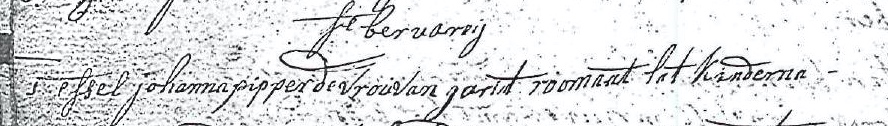 februarij
5 essel johanna pipper de vrou van garit roomant lat kinder na